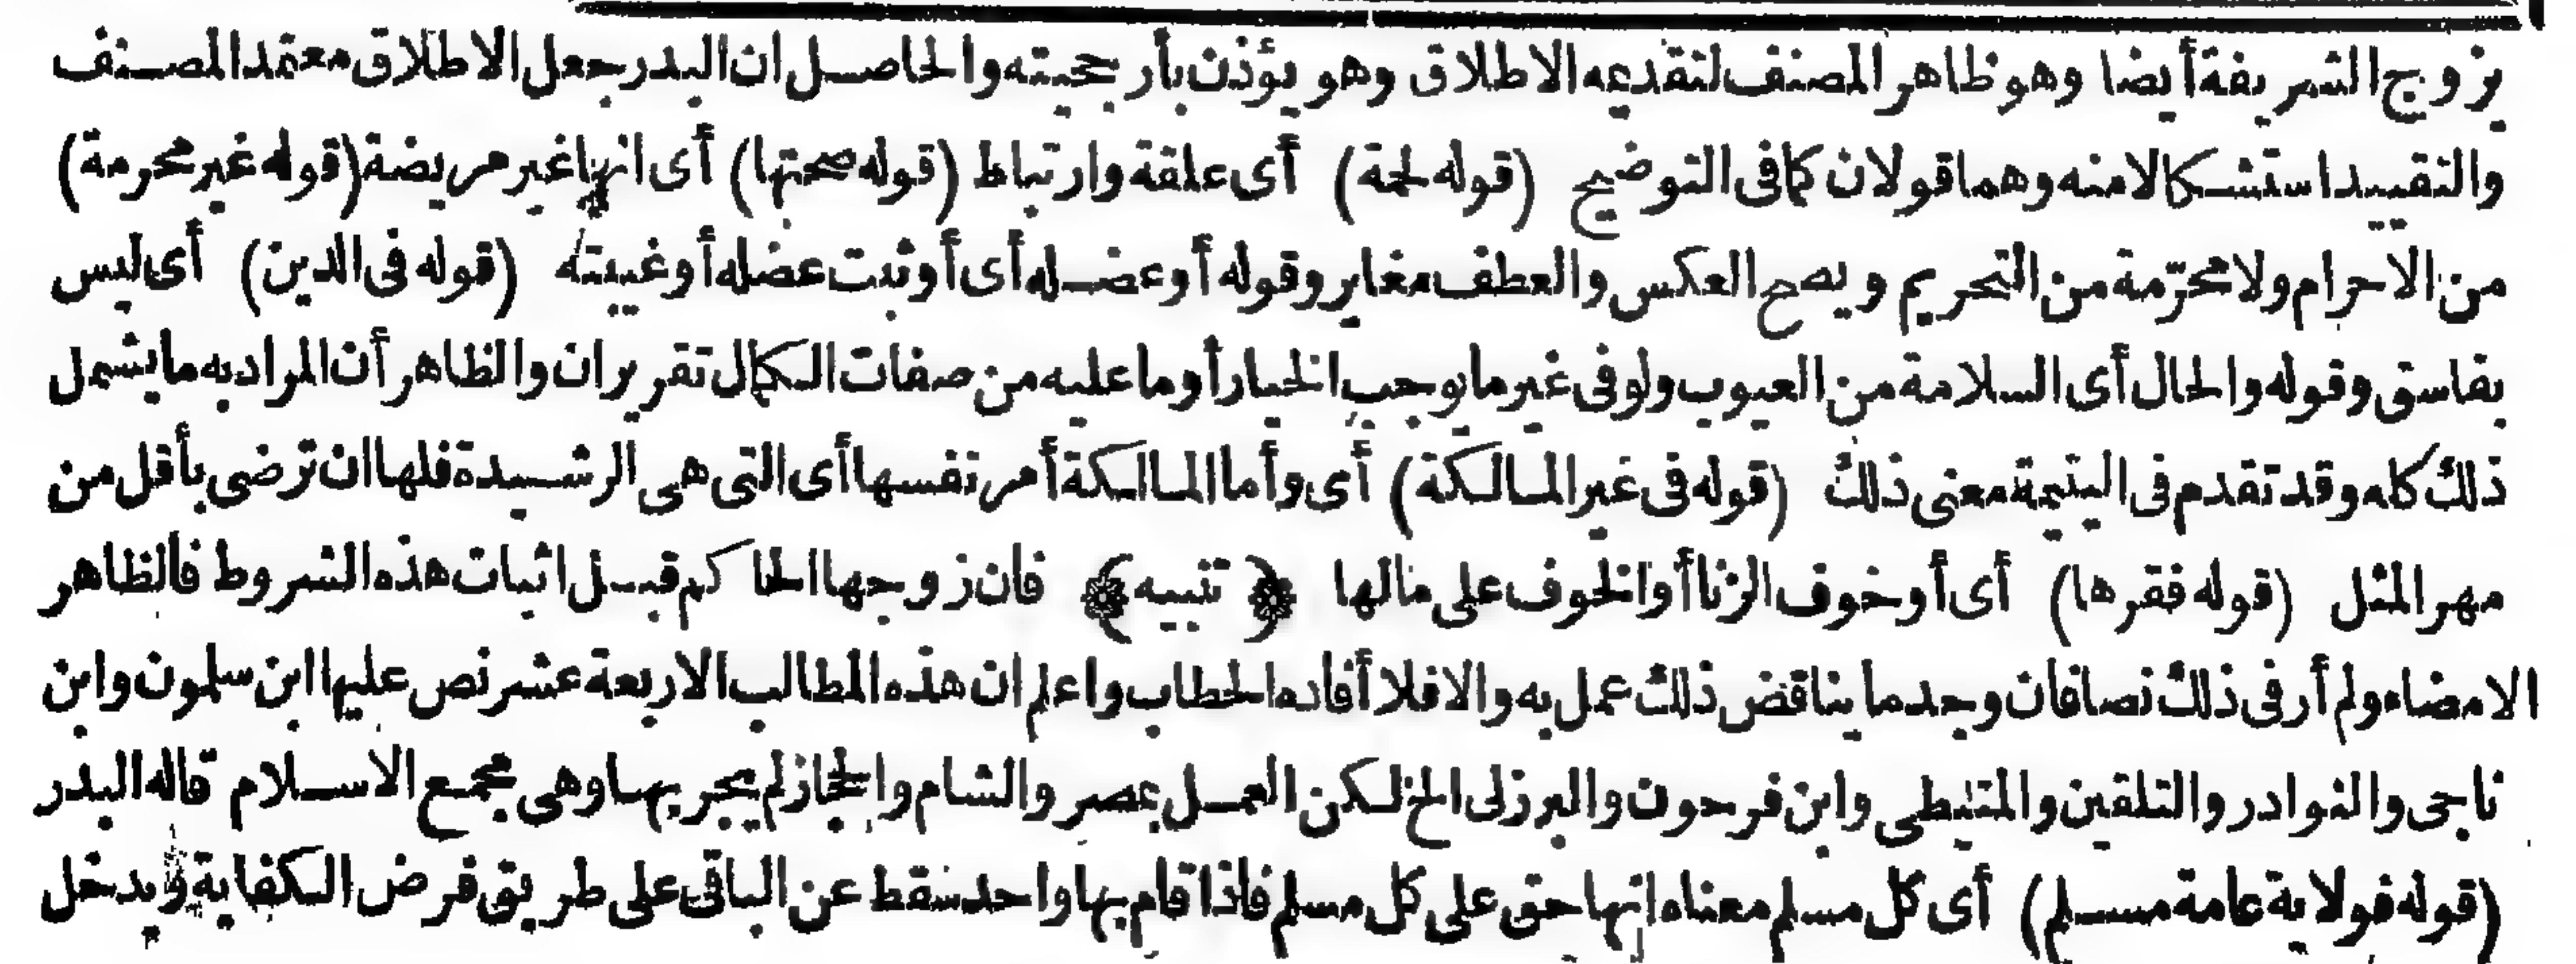 يزوج الشريفة أيضا وهو ظاهر المصنف لتقديمه الاطلاق وهو يؤذن بأرجحيته والحاصل ان البدر جعل الاطلاق معتمد المصنف
والتقييد استشكالا منه وهما قولان كما فى التوضيح (قوله لحمة) أى علقة وارتباط (قوله صحتها) أى انها غير مريضة (قوله غير محرمة)
من الاحرام ولا محرّمة من التحريم ويصح العكس والعطف مغاير وقوله أو عضله أى أو ثبت عضله أو غيبته (قوله فى الدين) أى ليس
بفاسق وقوله والحال أى السلامة من العيوب ولو فى غير ما يوجب الخيار أو ما عليه من صفات الكمال تقريران والظاهر أن المراد به ما يشمل
ذلك كله وقد تقدم فى اليتيمة معنى ذلك (قوله فى غير المالكة) أى وأما المالكة أمر نفسها أى التى هى الرشيدة فلها ان ترضى بأقل من
مهر المثل (قوله فقرها) أى أو خوف الزنا أو الخوف على مالها ﴿تنبيه﴾ فان زوجها الحاكم قبل اثبات هذه الشروط فالظاهر
الامضاء ولم أر فى ذلك نصا فان وجد ما يناقض ذلك عمل به والا فلا أفاده الحطاب واعلم ان هذه المطالب الاربعة عشر نص عليها ابن سلمون وابن
ناجى والنوادر والتلقين والمتيطى وابن فرحون والبرزلى الخ لكن العمل بمصر والشام والحجاز لم يجر بها وهى مجمع الاسلام قاله البدر
(قوله فولاية عامة مسلم) أى كل مسلم معناه انها حق على كل مسلم فاذا قام بها واحد سقط عن الباقى على طريق فرض الكفاية ويدخل